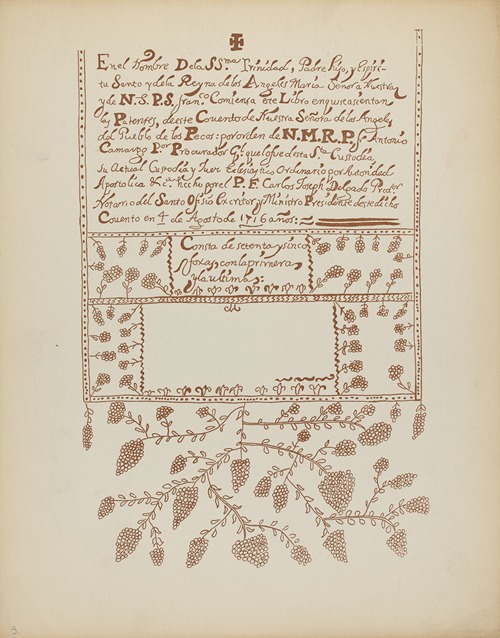 En el Nombre De la SSma Trinidad, Padre Hijo, y Espiri-
tu Santo y de la Reyna de los Angeles Maria Señora Nuestra
y de N. S. P. S. Franco. Comiensa este Libro en que se asientan
las Patentes, de este Convento de Nuestra Señora de los Angeles
del Pueblo de los Pecos: por orden de N. M. R. P. Fr. Antonio
Camargo Por Procurador Gl. que lo fue de esta Sta. Custodia
Su Actual Custodio y Juez Eclesiastico Ordinario por Autoridad
Apostolica &ca. hecho por el P. F. Carlos Joseph Delgado Predor.
Notario del Santo Ofisio Escritor y Ministro Presidente de se dicho
Convento en 4 de Agosto de 1716 años:
Consta de setenta y sinco
foxas, con la primera
y la ultima:
3.